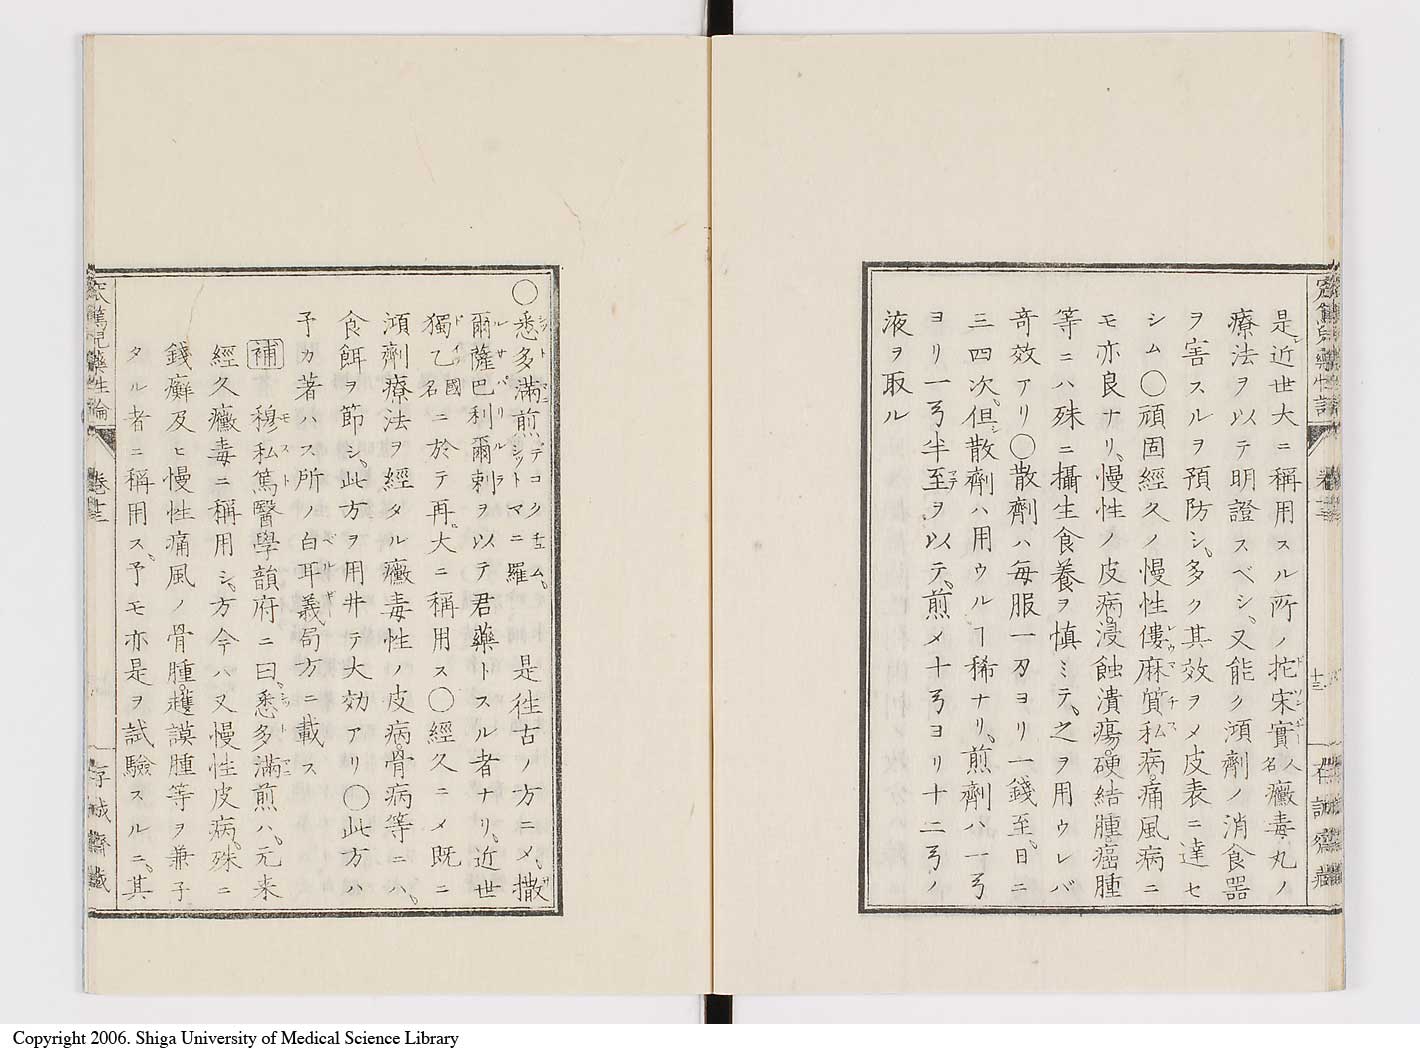 是近世大ニ稱用スル所ノ扡宋實ノ名黴毒丸ノ
療法ヲ以テ明證スベシ、又能ク鴻劑ノ消食器
ヲ害スルヲ預防シ、多ク其效ヲメ皮表ニ達セ
シム〇頑固經久ノ慢性僂麻質私病痛風病ニ
モ亦良ナリ、慢性ノ皮病浸蝕潰瘍硬結腫癌腫
等ニハ殊ニ攝生食養ヲ愼ミテ、之ヲ用ウレバ
奇效アリ〇散劑ハ毎服一刄ヨリ一錢至、日ニ
三四次、但散劑ハ用ウルヿ稀ナリ、煎劑ハ一弓
ヨリ一弓半至ヲ以テ、煎メ十弓ヨリ十二弓ノ
液ヲ取ル
〇悉多滿煎シットマニ羅デコクチュム、是徃古ノ方ニメ、撒
爾薩巴利爾剌ヲ以テ君藥トスル者ナリ、近世
獨乙國名ニ於テ再大ニ稱用ス〇經久ニメ既ニ
鴻劑療法ヲ經タル黴毒性ノ皮病骨病等ニハ、
食餌ヲ節シ、此方ヲ用井テ大効アリ〇此方ハ
予カ著ハス所ノ白耳義局方ニ載ス
補 穆私篤醫學韻府ニ曰、悉多滿煎ハ、元来
經久黴毒ニ稱用シ、方今ハ又慢性皮病、殊ニ
錢癬及ヒ慢性痛風ノ骨腫、護謨腫等ヲ兼子
タル者ニ稱用ス、予モ亦是ヲ試驗スルニ、其
窊篤兒藥性論 卷十三 存誠齋藏
Copyright 2006. Shiga University of Medical Science Library